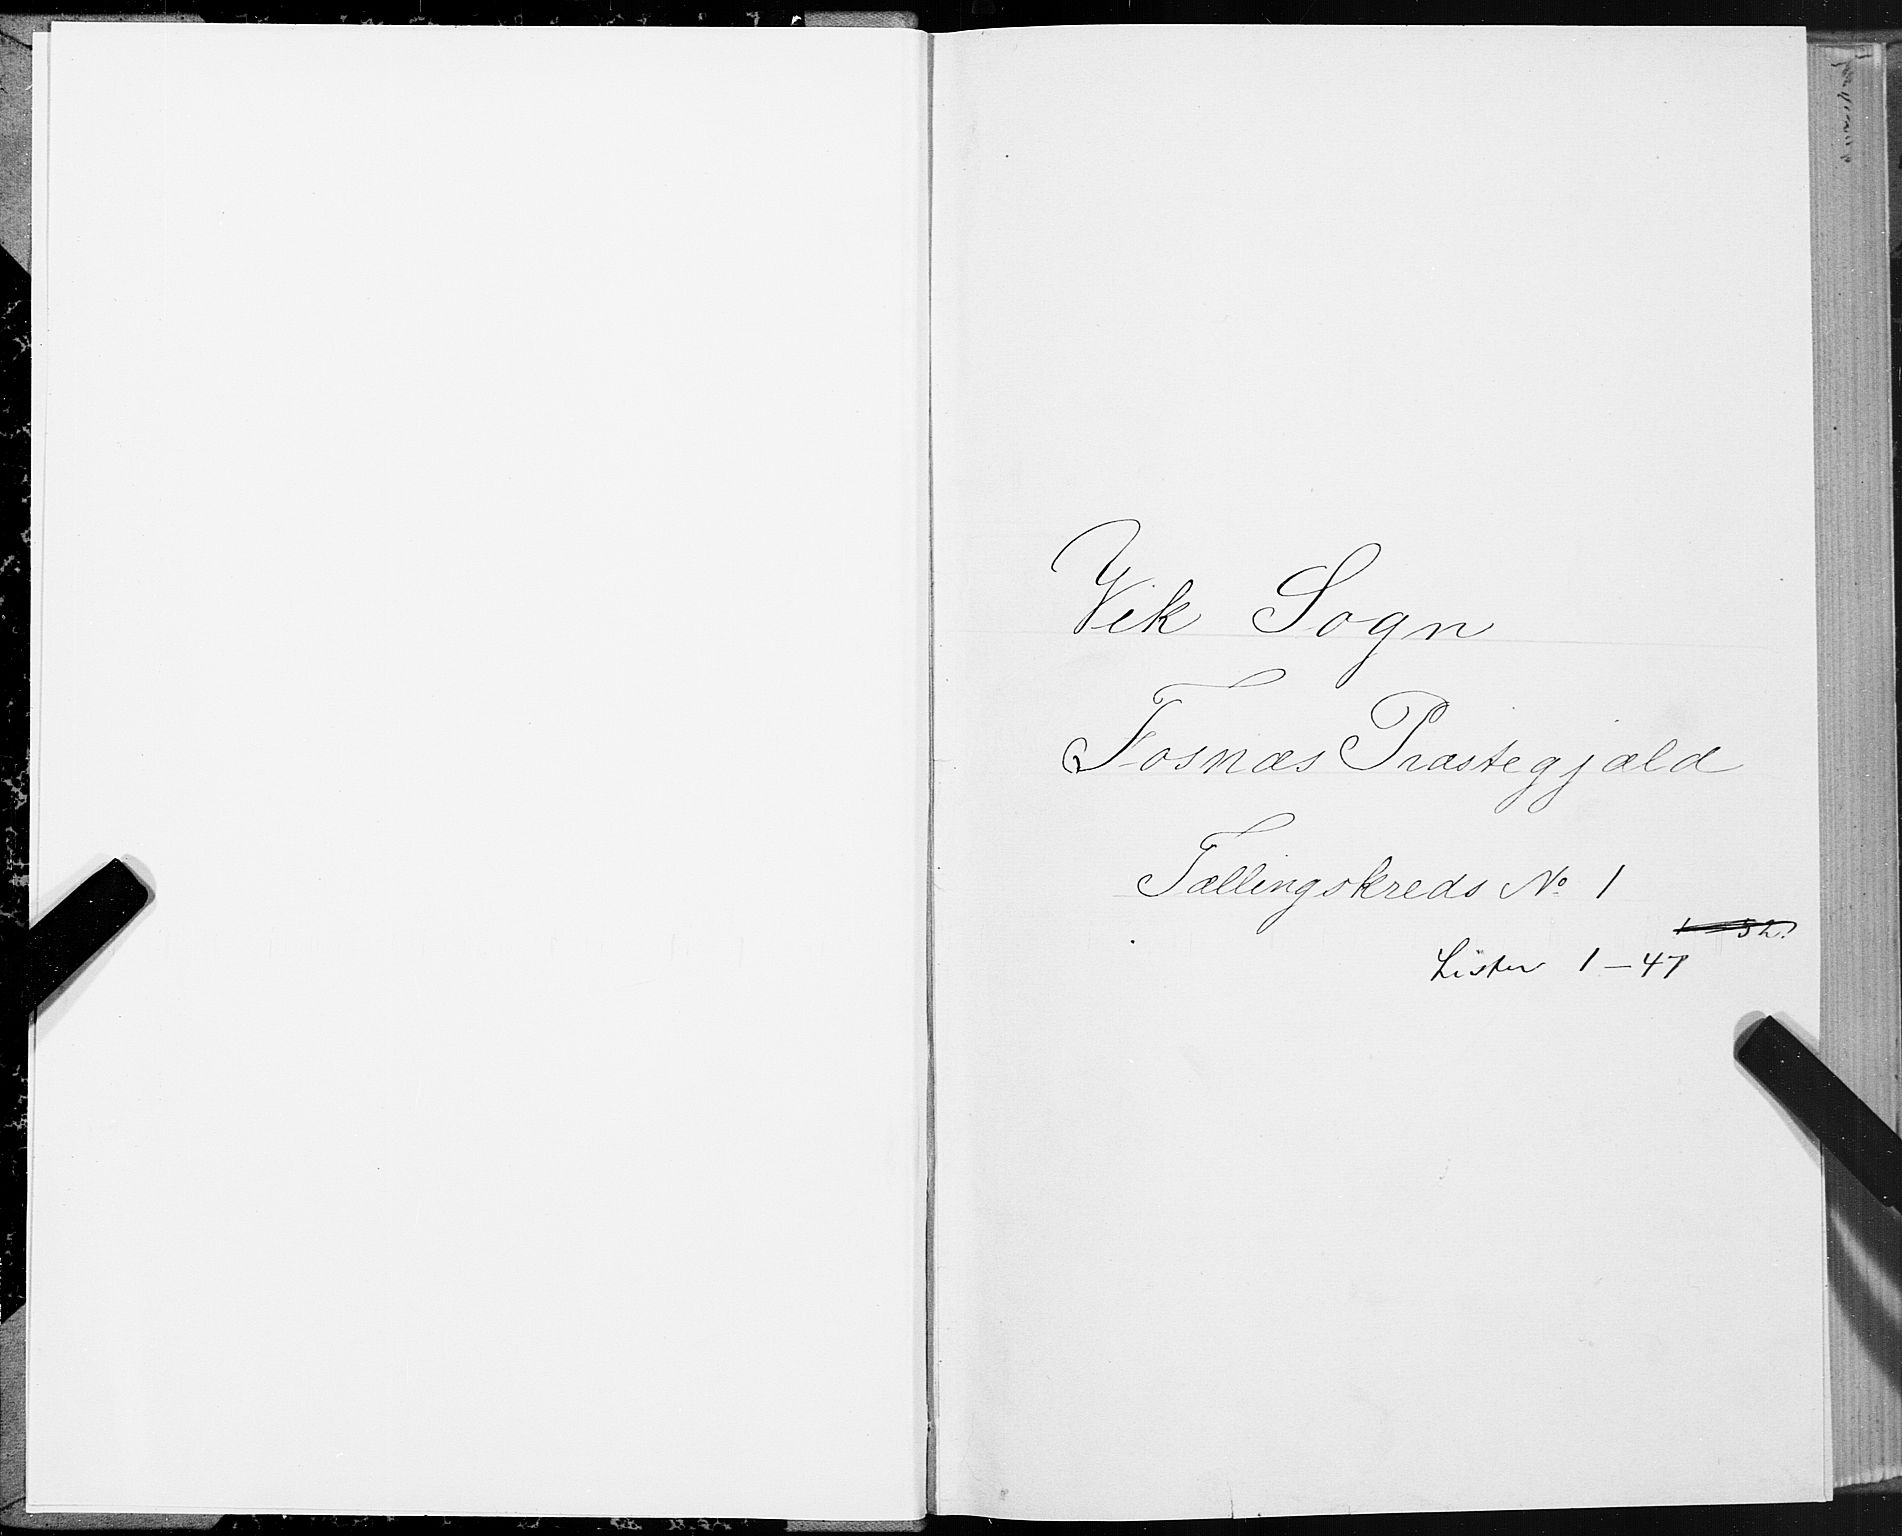 Vik Sogn
Fosnæs Præstegjæld
Tællingskreds No. 1
Lister 1–47